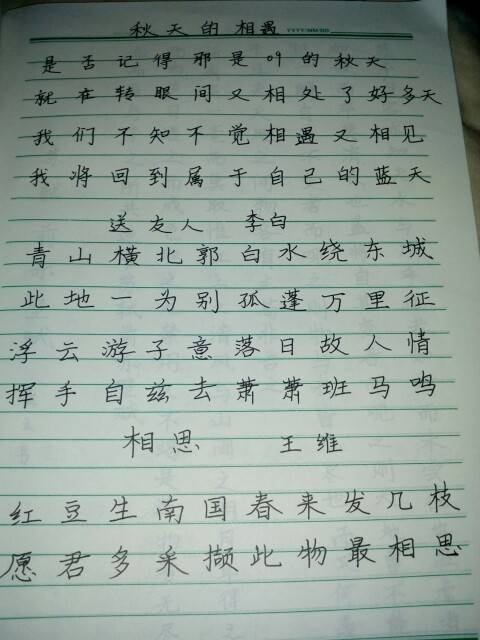 秋天的相遇 YYYY/MM/DD
是否记得那是09的秋天
就在转眼间又相处了好多天
我们不知不觉相遇又相见
我将回到属于自己的蓝天
送友人 李白
青山横北郭白水绕东城
此地一为别孤蓬万里征
浮云游子意落日故人情
挥手自兹去萧萧班马鸣
相思 王维
红豆生南国春来发几枝
愿君多采撷此物最相思